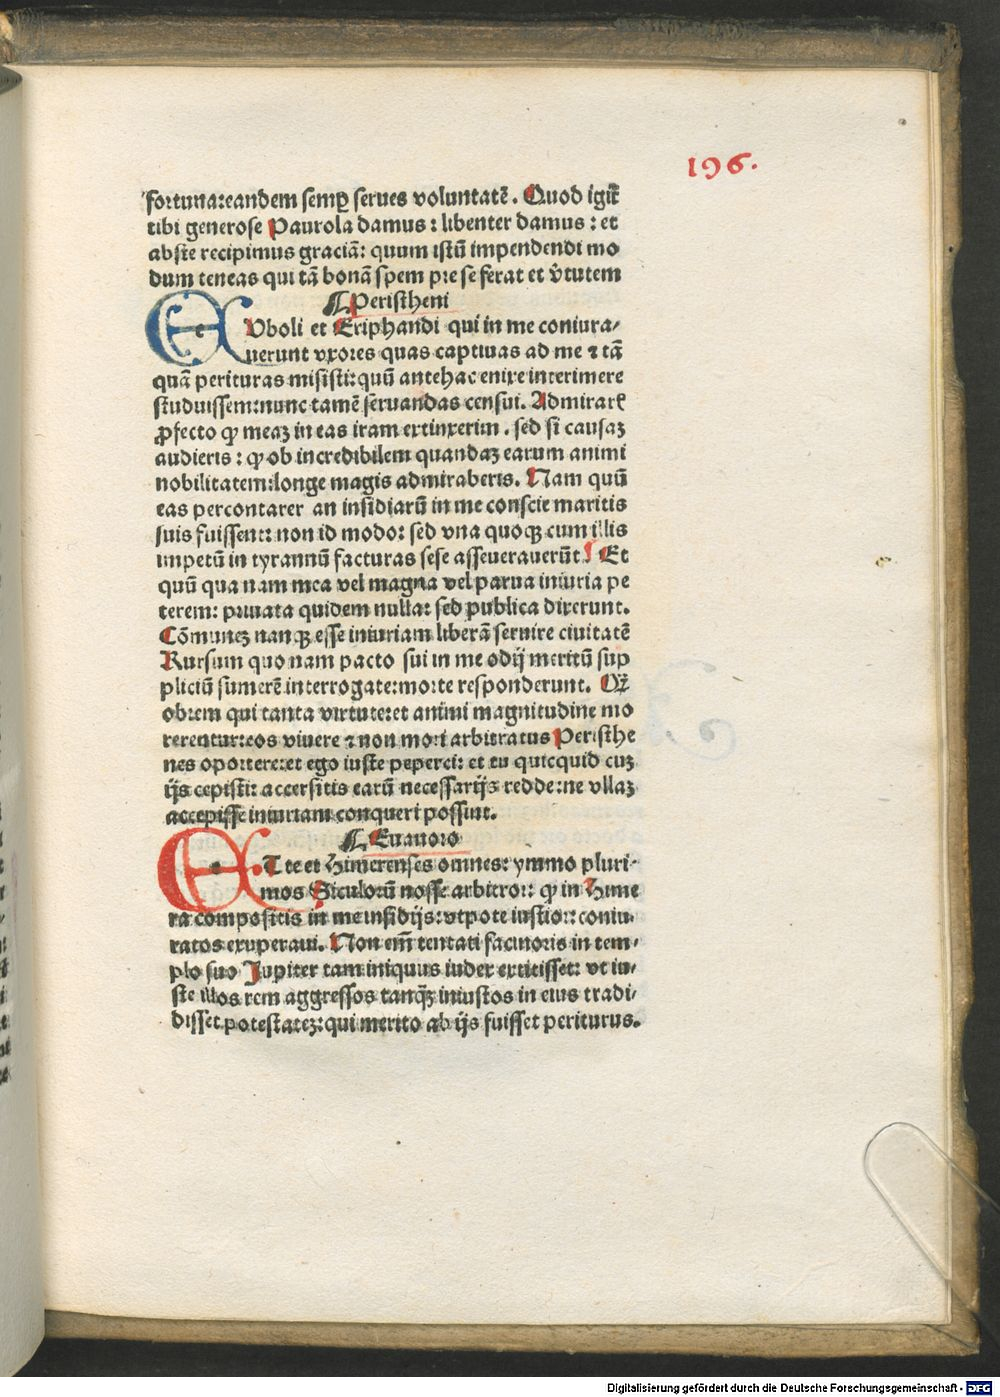 196.
fortuna:eandem semꝑ serues voluntatē. Quod igit̄
tibi generose Paurola damus: libenter damus: et
abste recipimus graciā: quum istū impendendi mo
dum teneas qui tā bonā spem pre se ferat et v̄tutem
¶ Peristheni
EUboli et Eriphandi qui in me coniura/
uerunt vxores quas captiuas ad me ⁊ tā
quā perituras misisti: quū antehac enixe interimere
studuissem: nunc tamē seruandas censui. Admirarꝭ
ꝓfecto ꝙ meaꝫ in eas iram extinxerim. sed si causaꝫ
audieris: ꝙ ob incredibilem quandaꝫ earum animi
nobilitatem: longe magis admiraberis. Nam quū
eas percontarer an insidiarū in me conscie maritis
suis fuissent: non id modo: sed vna quoqꝫ cum illis
impetū in tyrannū facturas sese asseuerauerūt! Et
quū qua nam mea vel magna vel parua iniuria pe
terem: priuata quidem nulla: sed publica dixerunt.
Cōmuneꝫ nanqꝫ esse iniuriam liberā seruire ciuitatē
Rursum quo nam pacto sui in me odij meritū sup
pliciū sumerē interrogate: morte responderunt. Qꝫ
obrem qui tanta virtute: et animi magnitudine mo
rerentur: eos viuere ⁊ non mori arbitratus Peristhe
nes oportere: et ego iuste peperci: et tu quicquid cuꝫ
ijs cepisti: accersitis earū necessarijs redde: ne vllaꝫ
accepisse iniuriam conqueri possint.
¶ Euanoro
ET te et Himerenses omnes: ymmo pluri-
mos Siculorū nosse arbitror: ꝙ in Hime
ra compositis in me insidijs: vtpote iustior: coniu-
ratos exuperaui. Non em̄ tentati facinoris in tem-
plo suo Jupiter tam iniquus iudex extitisset: vt iu-
ste illos rem aggressos tanqꝫ iniustos in eius tradi-
disset potestateꝫ: qui merito ab ijs fuisset periturus.
Digitalisierung gefördert durch die Deutsche Forschungsgemeinschaft - DFG